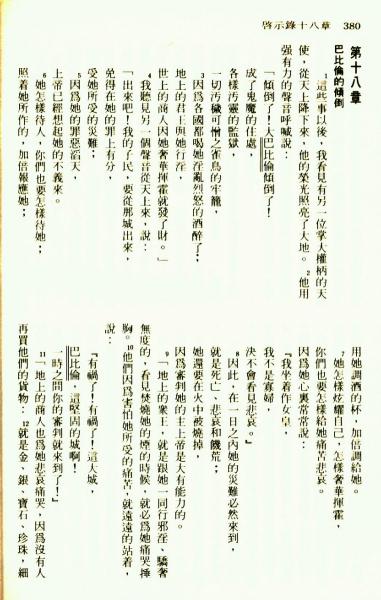 啓示錄十八章 380
第十八章
巴比倫的傾倒
1這些事以後，我看見有另一位掌大權柄的天
使，從天上降下來，他的榮光照亮了大地。2他用
强有力的聲音呼喊說：
「傾倒了！大巴比倫傾倒了！
成了鬼魔的住處，
各樣汚靈的監獄，
一切汚穢可憎之雀鳥的牢籠，
3因爲各國都喝她淫亂烈怒的酒醉了；
地上的君王與她行淫，
世上的商人因她奢華揮霍就發了財。」
4我聽見另一個聲音從天上來，說：
「出來吧！我的子民，要從那城出來，
免得在她的罪上有分，
受她所受的災難；
5因爲她的罪惡滔天，
上帝已經想起她的不義來。
6她怎樣待人，你們也要怎樣待她；
照着她所作的，加倍報應她；
用她調酒的杯，加倍調給她。
7她怎樣炫耀自己，怎樣奢華揮霍，
你們也要怎樣給她痛苦悲哀。
因爲她心裏常常說：
『我坐着作女皇，
我不是寡婦，
決不會看見悲哀。』
8因此，在一日之內她的災難必然來到，
就是死亡、悲哀和饑荒；
她還要在火中被燒掉，
因爲審判她的主上帝是大有能力的。
9「地上的衆王，就是跟她一同行邪淫、驕奢
無度的，看見焚燒她的煙的時候，就必爲她痛哭捶
胸。10他們因爲害怕她所受的痛苦，就遠遠的站着，
說：
『有禍了！有禍了！這大城，
巴比倫，這堅固的城啊！
一時之間你的審判就來到了！』
11「地上的商人也爲她悲哀痛哭，因爲沒有人
再買他們的貨物：12就是金、銀、寶石、珍珠，細